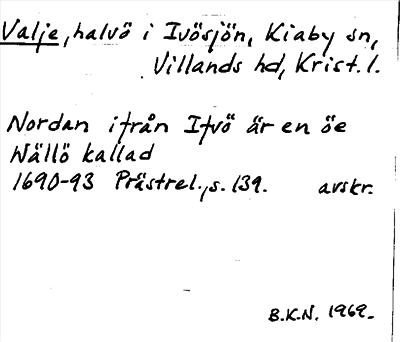 Valje, halvö i Ivösjön, Kiaby sn,
Villands hd, Krist. l.
Nordan ifrån Ifvö är en öe
Wällö kallad
1690-93 Prästrel., s. 139. avskr.
B.K.N. 1969.